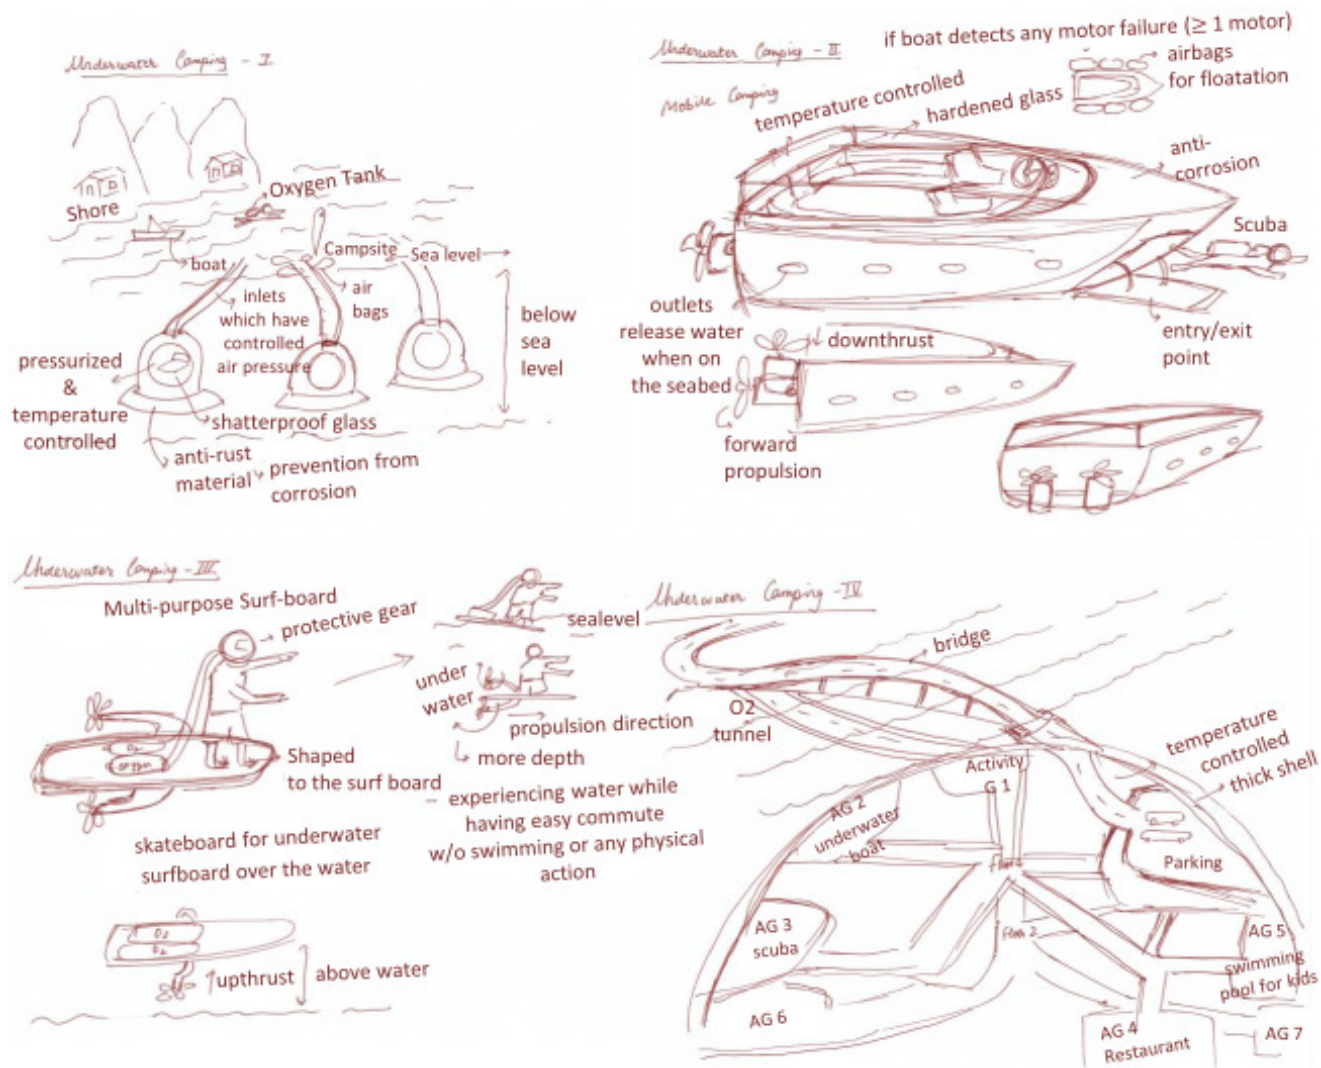 Underwater Camping - I
Shore
Oxygen Tank
boat
Campsite
Sea level
inlets
which have
controlled
air pressure
air
bags
below
sea
level
pressurized
&
temperature
controlled
shatterproof glass
anti-rust
material
prevention from
corrosion
Underwater Camping - II
Mobile Camping
if boat detects any motor failure (≥ 1 motor)
airbags
for floatation
temperature controlled
hardened glass
anti-
corrosion
Scuba
entry/exit
point
outlets
release water
when on
the seabed
downthrust
forward
propulsion
Underwater Camping - III
Multi-purpose Surf-board
protective gear
O2
Shaped
to the surf board
skateboard for underwater
surfboard over the water
sealevel
under
water
propulsion direction
more depth
- experiencing water while
having easy commute
w/o swimming or any physical
action
O2
O2
upthrust
above water
Underwater Camping - IV
bridge
O2
tunnel
temperature
controlled
thick shell
Activity
G 1
AG 2
underwater
boat
Parking
AG 3
scuba
Floor 2
AG 5
swimming
pool for kids
AG 6
AG 4
Restaurant
AG 7